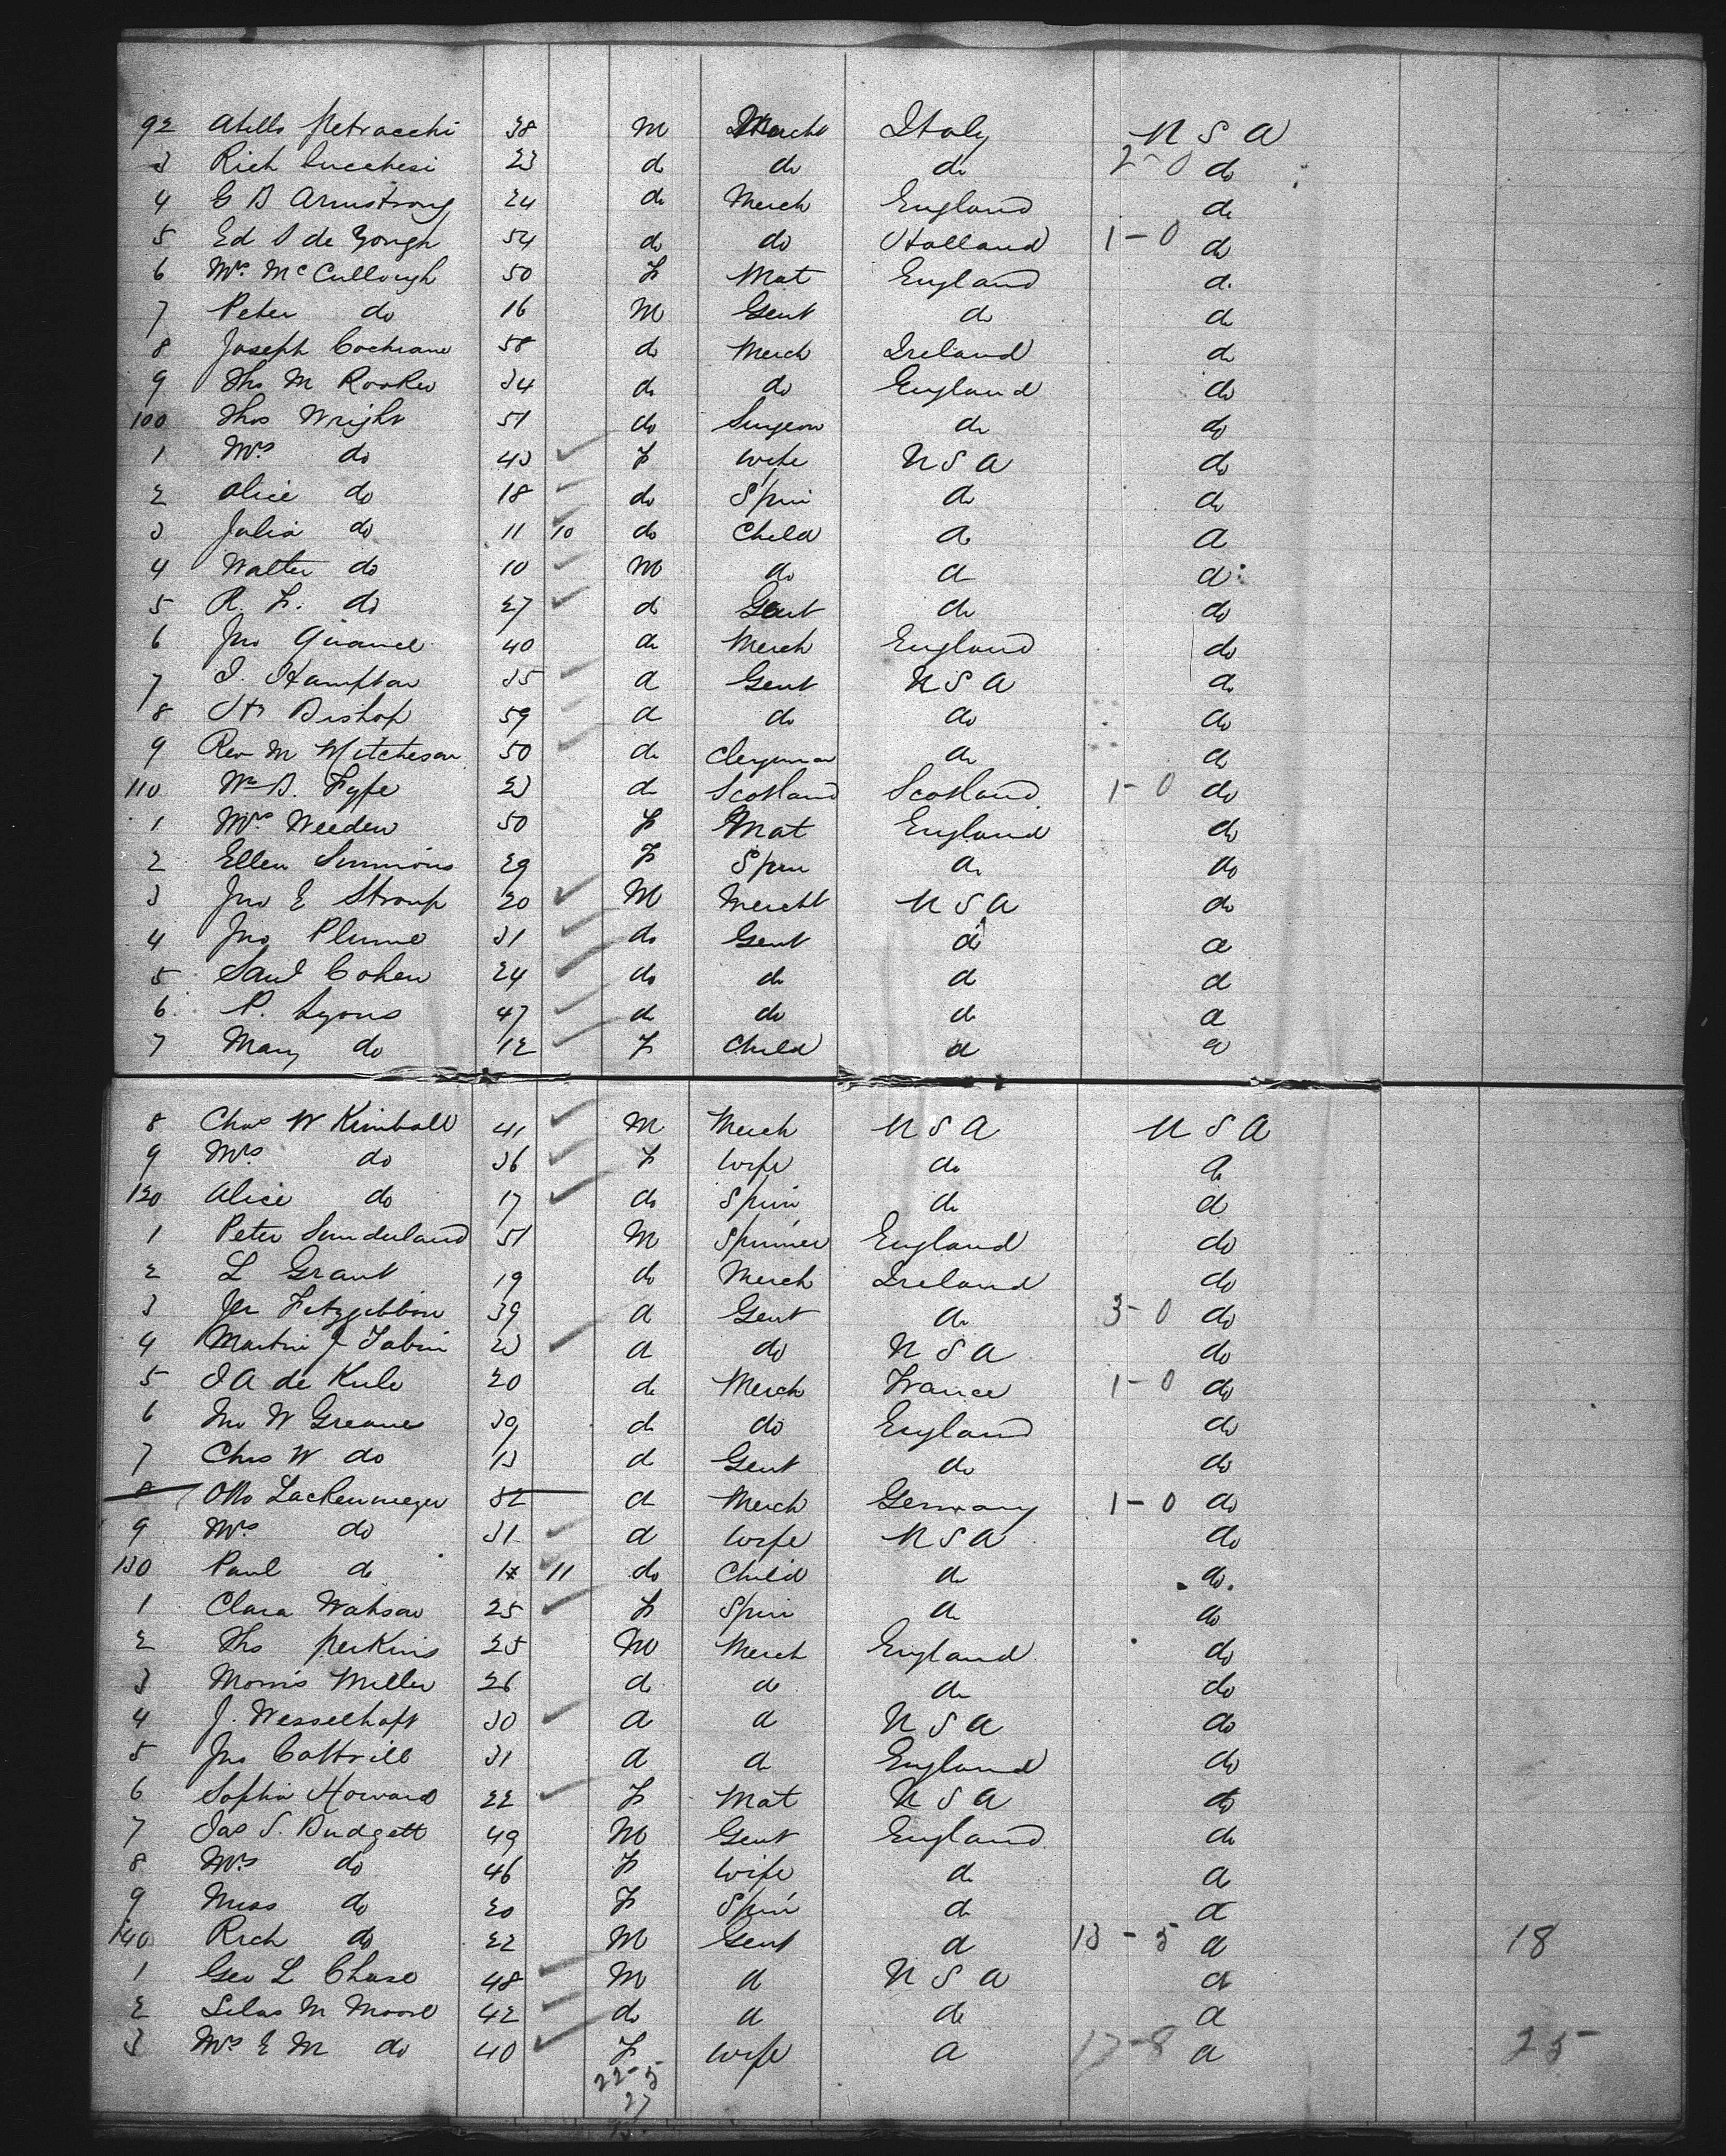 92 Atills Petracchi 38 M Mercht Italy U S A
3 Rich Lucchesi 23 do do do 2-0 do
4 G B Armstrong 24 do Merch England do
5 Ed S de Jongh 54 do do Holland 1-0 do
6 Mrs McCullough 50 F Mat England do
7 Peter do 16 M Gent do do
8 Joseph Cochrane 58 do Merch Ireland do
9 Tho M Rooke 34 do do England do
100 Thos Wright 51 do Surgeon do do
1 Mrs do 43 F Wife U S A do
2 Alice do 18 do Spin do do
3 Julia do 11 10 do Child do do
4 Walter do 10 M do do do
5 R. F. do 27 do Gent do do
6 Jno 40 do Merch England do
7 I. Hampton 35 do Gent U S A do
8 H Bishop 59 do do do do
9 Rev M Mitcheson 50 do Clergyman do do
110 Wm B. Fyfe 23 do Scotland Scotland 1-0 do
1 Mrs Weeden 50 F Mat England do
2 Ellen Simmons 29 F Spin do do
3 Jno E Stroup 20 M Mercht U S A do
4 Jno Plume 31 do Gent do do
5 Saul Cohen 24 do do do do
6 P. Lyons 47 do do do do
7 Mary do 12 F Child do do
8 Chas W Kimball 41 M Merch U S A U S A
9 Mrs do 36 F Wife do do
120 Alice do 17 do Spin do do
1 Peter Sunderland 51 M Spinner England do
2 L Grant 19 do Merch Ireland do
3 Jer Fitzgibbon 39 do Gent do 3-0 do
4 Martin J Tobin 23 do do U S A do
5 I A de Kule 20 do Merch France 1-0 do
6 Jno W Greaves 39 do do England do
7 Chas W do 13 do Gent do do
8 Otto Lackenmeyer 32 do Merch Germany 1-0 do
9 Mrs do 31 do Wife U S A do
130 Paul do 12 11 do Child do do
1 Clara Watson 25 F Spin do do
2 Tho Perkins 25 M Merch England do
3 Morris Miller 26 do do do do
4 J. Wesselhoft 30 do do U S A do
5 Jno Cottrill 31 do do England do
6 Sophia Howard 22 F Mat U S A do
7 Jas S. Budgett 49 M Gent England do
8 Mrs do 46 F Wife do do
9 Miss do 20 F Spin do do
140 Rich do 22 M Gent do 13-5 do 18
1 Geo L Chase 48 M do U S A do
2 Silas M Moore 42 do do do do
3 Mrs E M do 40 F Wife do 17-8 do 25
22-5
27